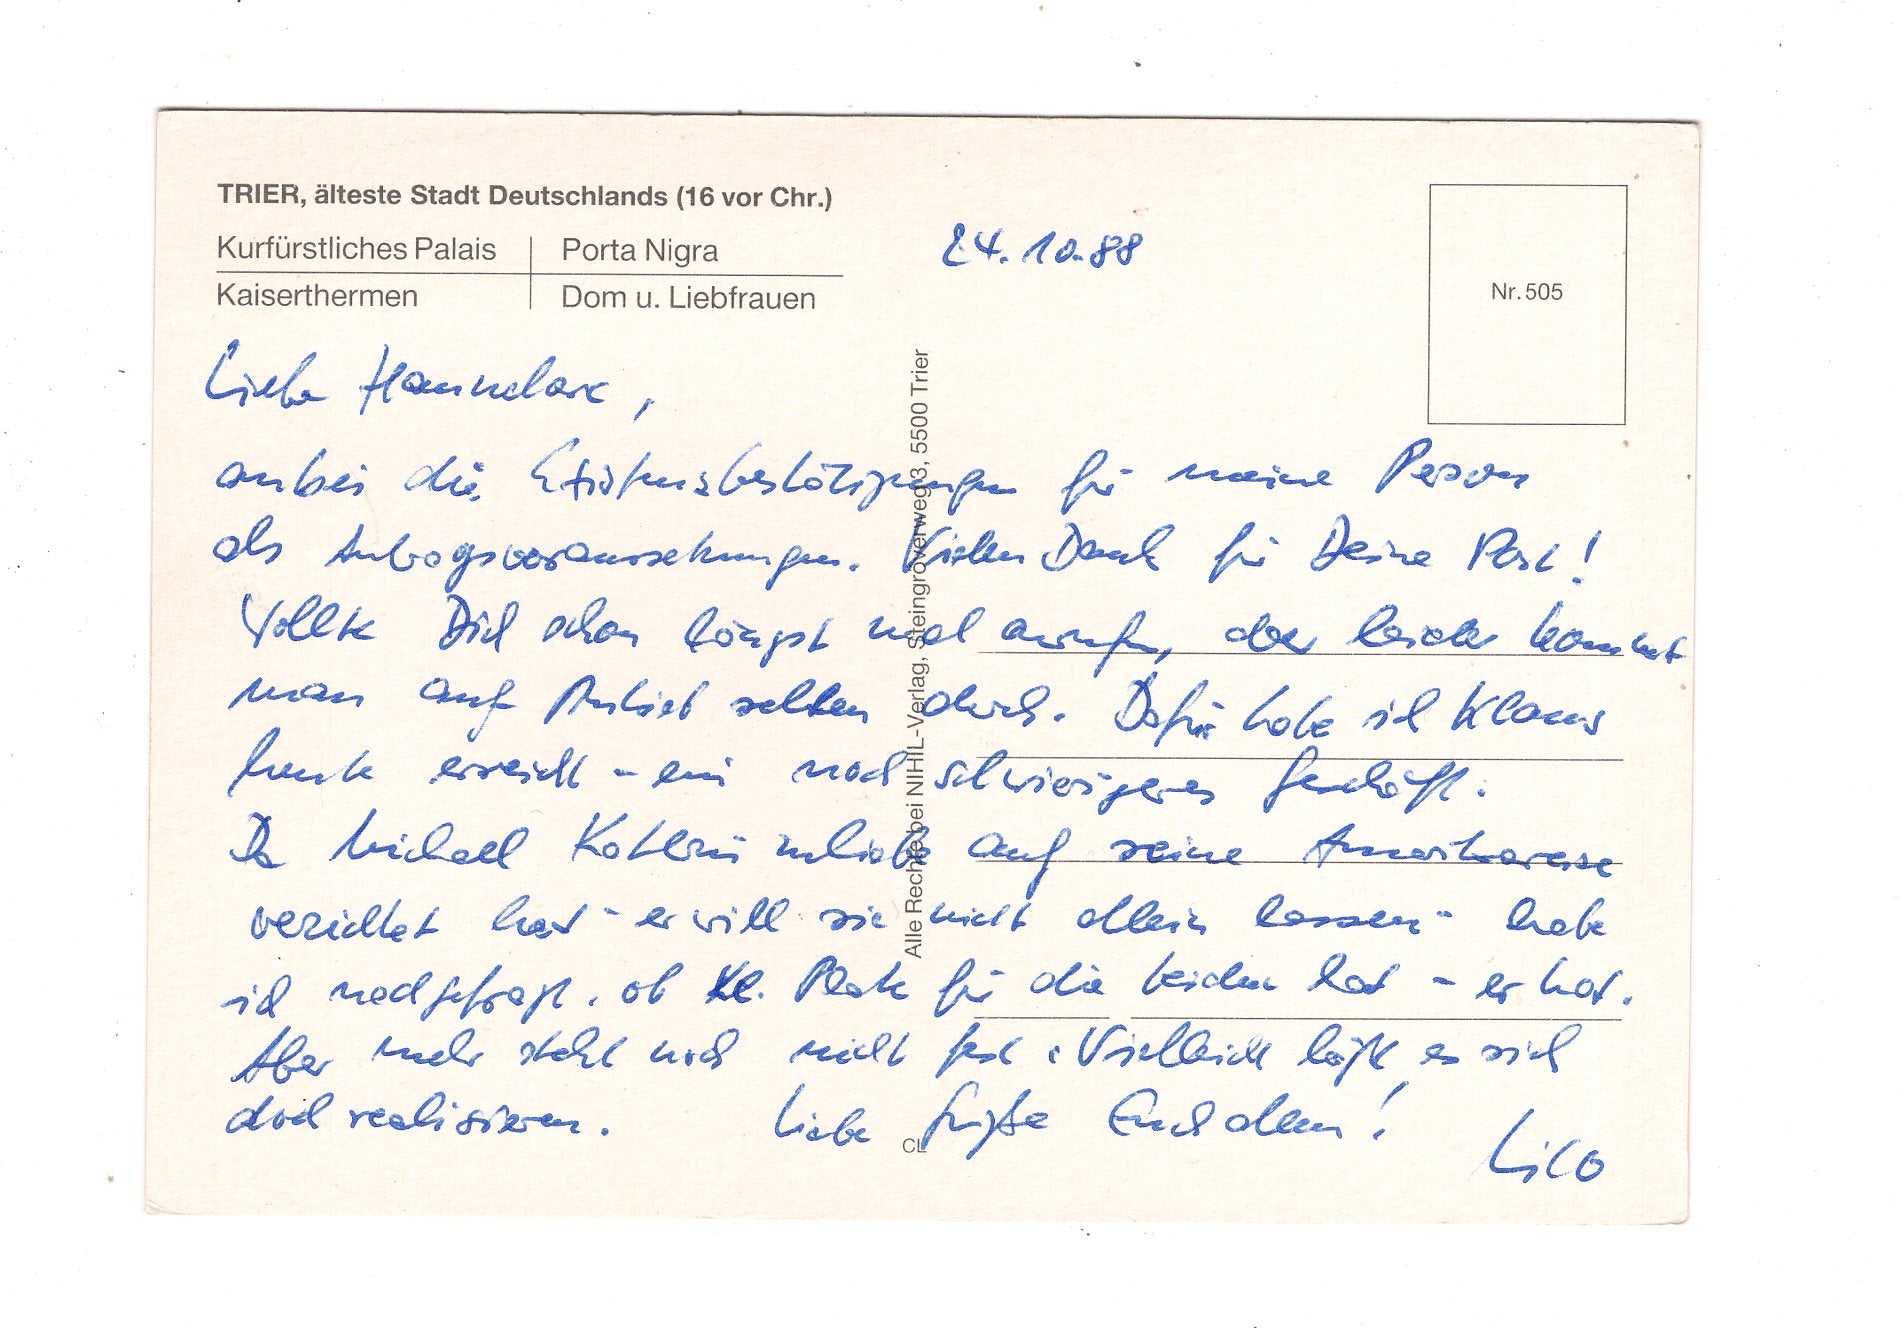 TRIER, älteste Stadt Deutschlands (16 vor Chr.)
Kurfürstliches Palais | Porta Nigra
Kaiserthermen | Dom u. Liebfrauen
24.10.88
Nr. 505
Liebe Hannelore,
anbei die Existenzbestätigungen für meine Person
als Antragsvoraussetzungen. Vielen Dank für Deine Post!
Wollte Dich schon längst mal anrufen, aber leider kommt
man auf Anhieb selten durch. Dafür habe ich Klaus
heute erreicht - ein noch schwierigeres Geschäft.
Da Michael Kathrin zuliebe auf seine Amerikareise
verzichtet hat - er will sie nicht allein lassen - habe
ich nachgefragt, ob Kl. Platz für die beiden hat - er hat.
Aber mehr steht noch nicht fest. Vielleicht läßt es sich
doch realisieren. Liebe Grüße Euch allen!
Lilo
Alle Rechte bei NIHIL-Verlag, Steingröverweg 3, 5500 Trier
CL